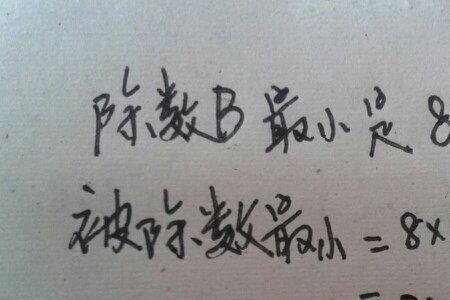 除数B最小是8
被除数最小=8×
=